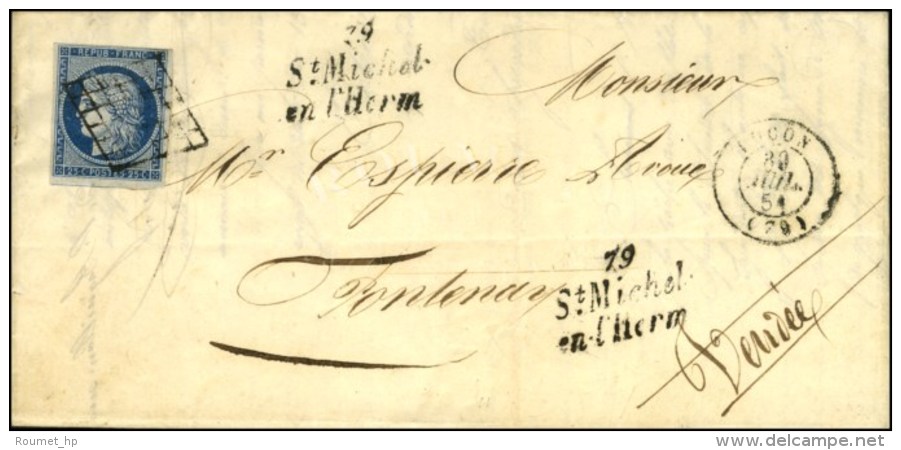 REPUB FRANC
25 C POSTES 25 C
79
St Michel-
en l'Herm
Monsieur
Mr Espierre Avoué
Fontenay
LUÇON
30
JUIL.
51
(79)
79
St Michel-
en-l'Herm
Vendée
Roumet_hp
www.delcampe.net